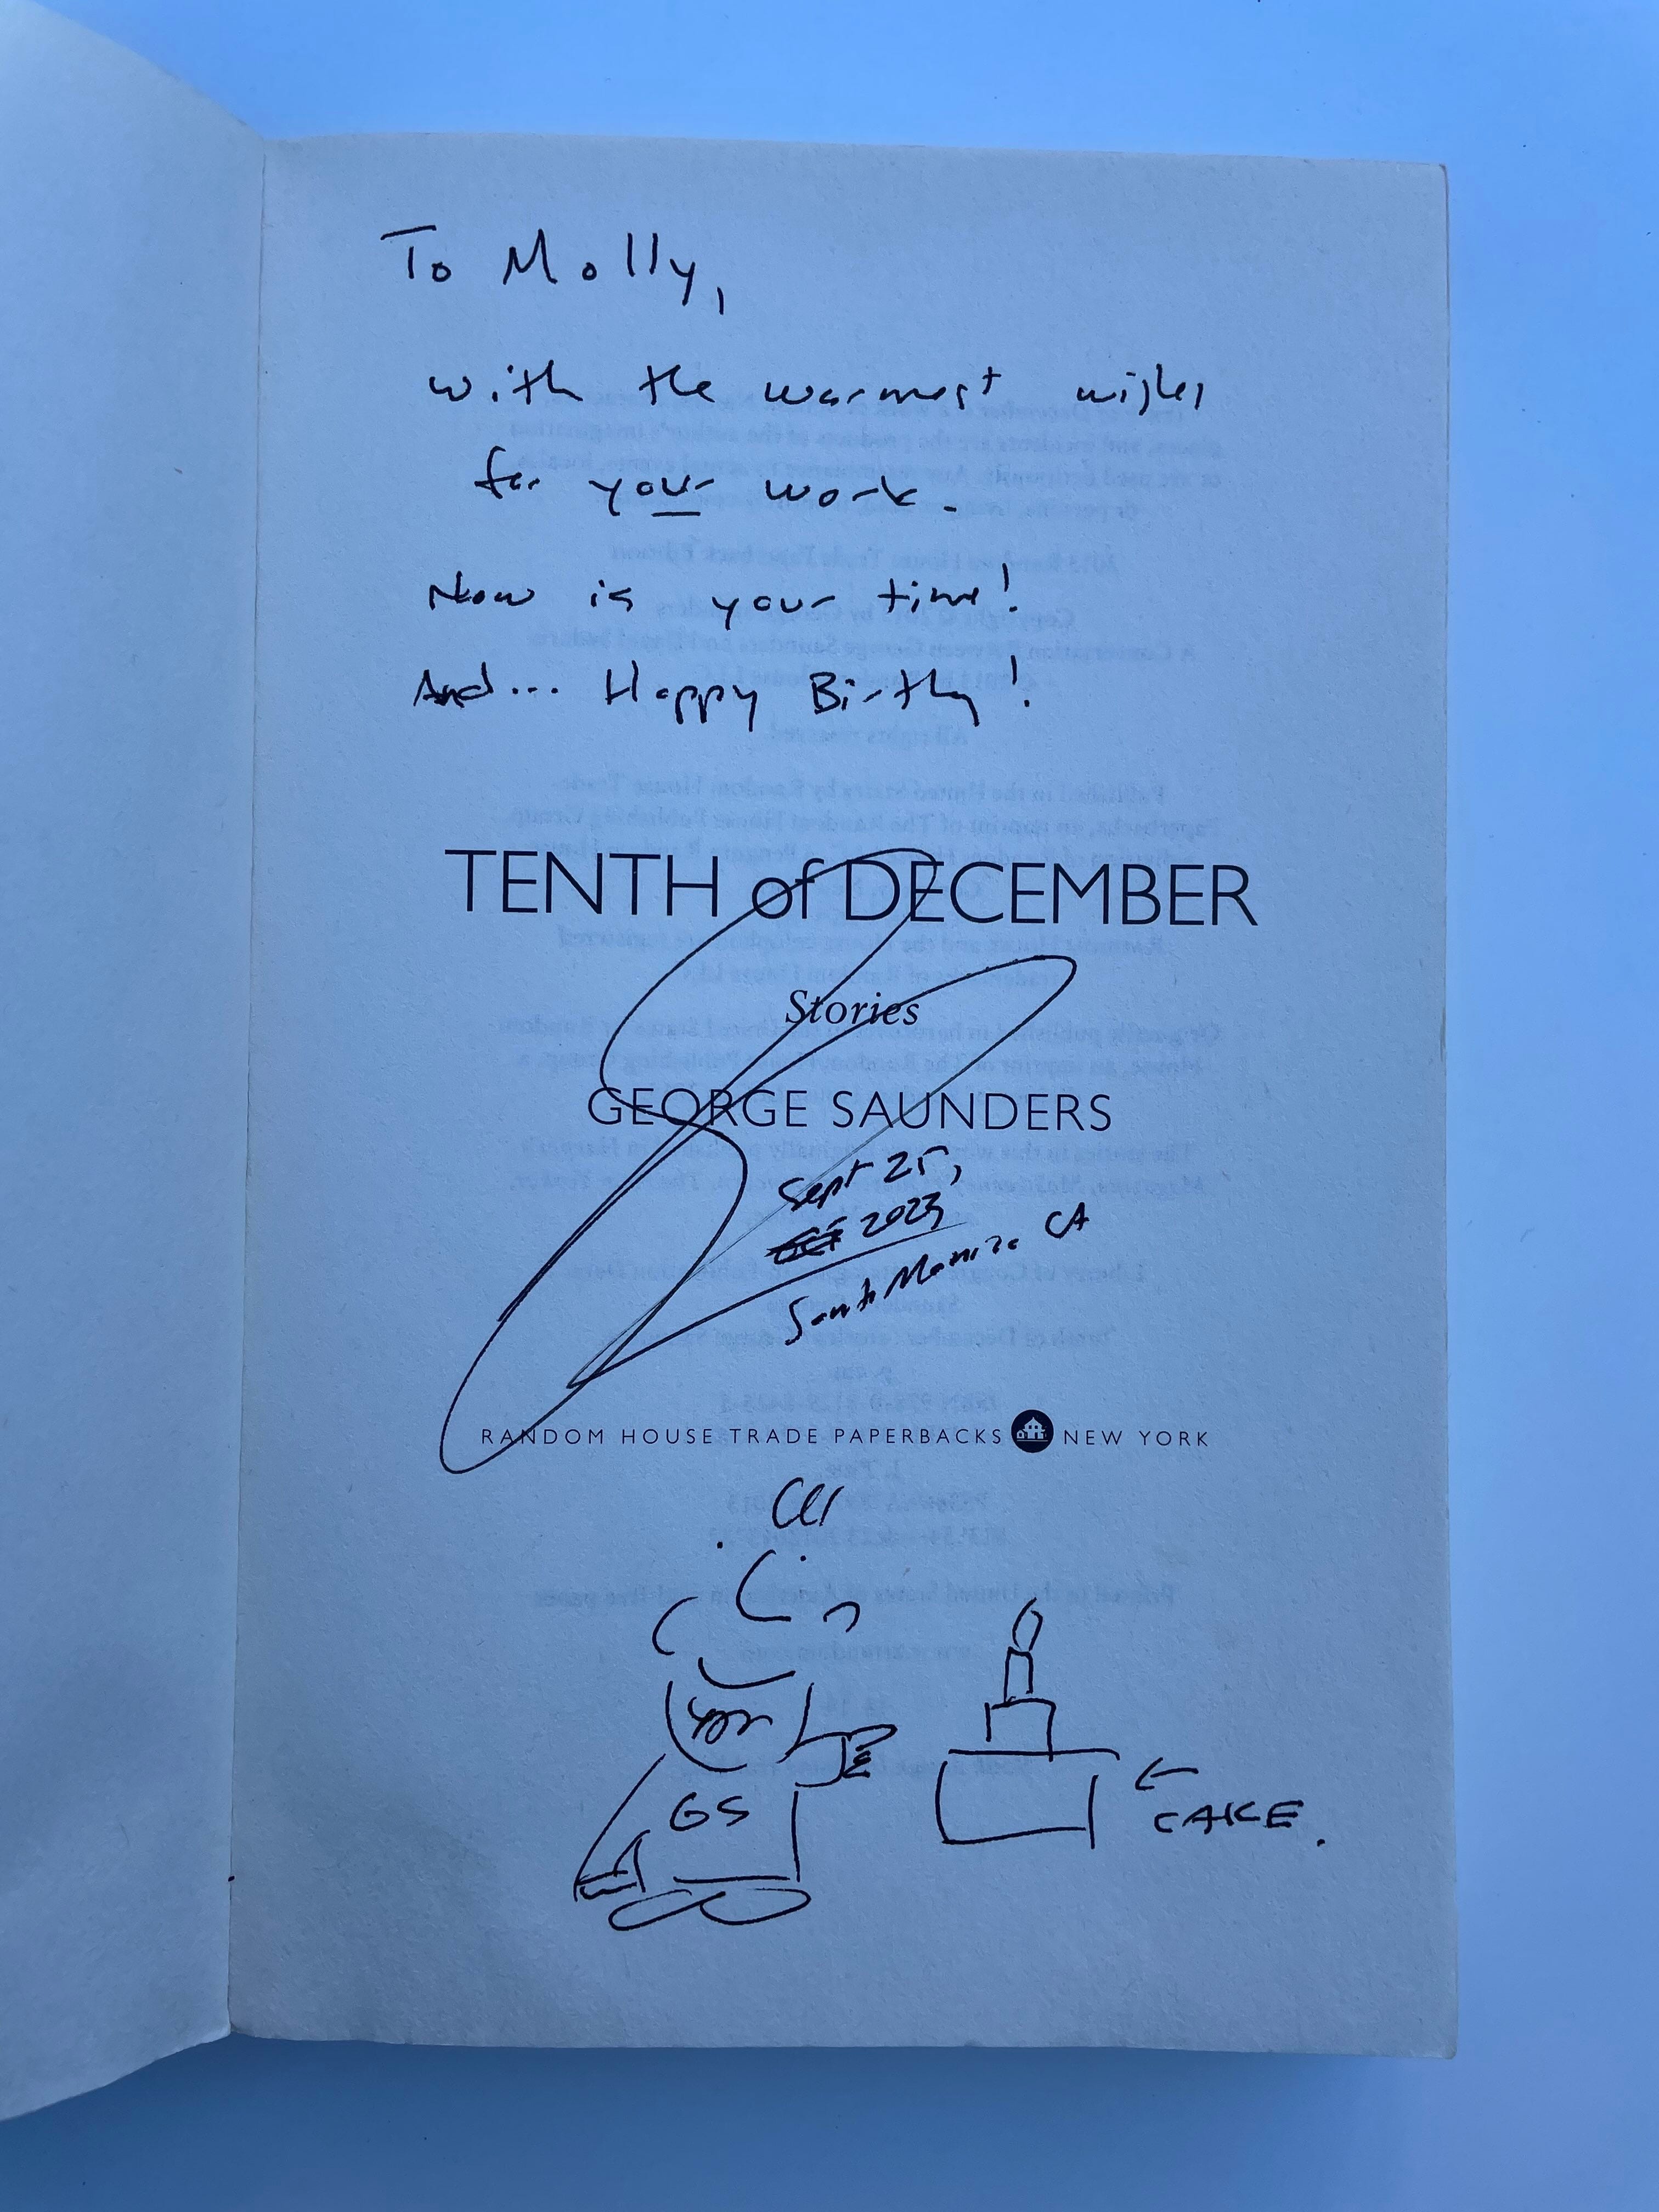 To Molly,
with the warmest wishes
for your work.
Now is your time!
And... Happy Birthday!
TENTH of DECEMBER
Stories
GEORGE SAUNDERS
Sept 25,
2023
Santa Monica CA
RANDOM HOUSE TRADE PAPERBACKS NEW YORK
GS
← CAKE.